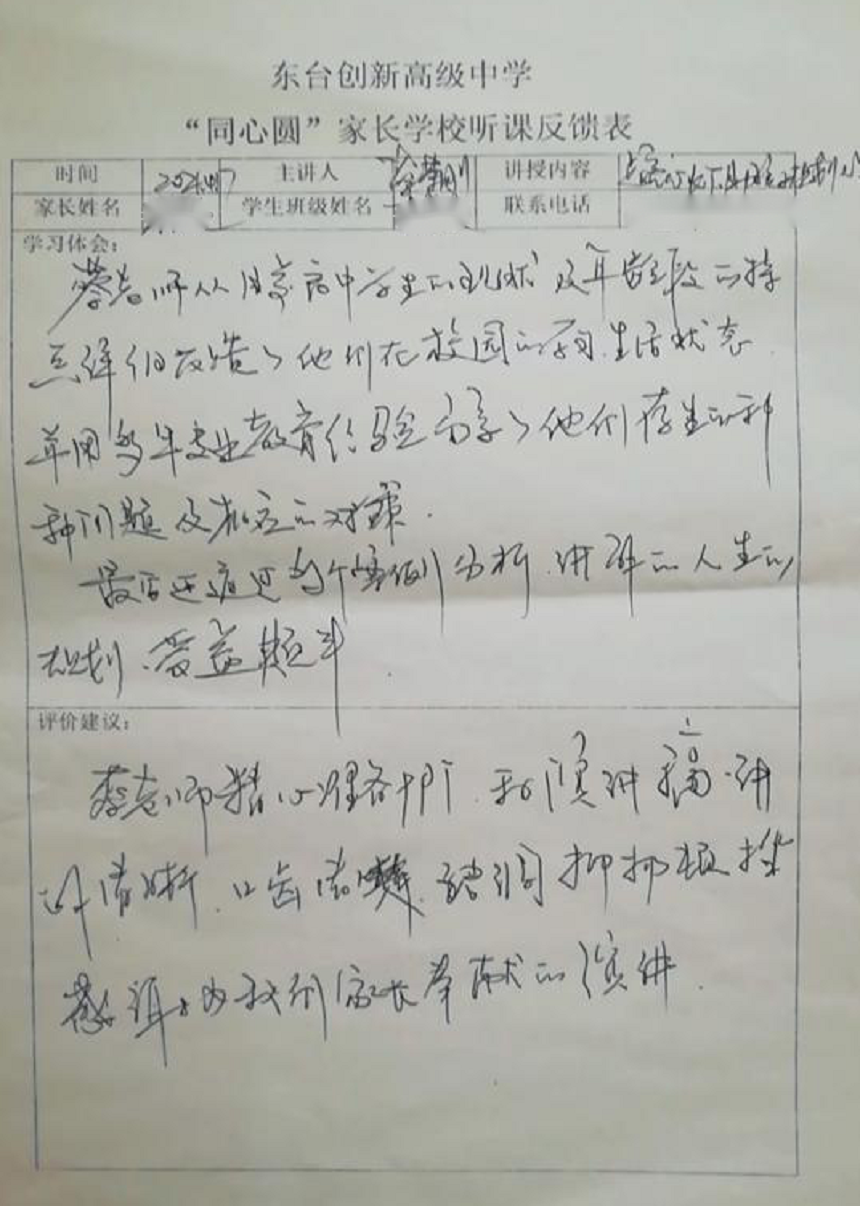 东台创新高级中学
“同心圆”家长学校听课反馈表
时间 主讲人 讲授内容
家长姓名 学生班级姓名 联系电话
学习体会：
蔡老师从目前高中学生的现状及年龄段的特
点详细反馈了他们在校园的学习、生活状态
并用多年专业教育经验分享了他们存在的种
种问题及相应的对策.
最后还通过多个案例分析、讲解的人生的
规划、受益颇丰
评价建议：
蔡老师精心准备 演讲稿、讲
清晰、口齿清楚、语调抑扬顿挫
感谢为我们家长奉献的演讲.